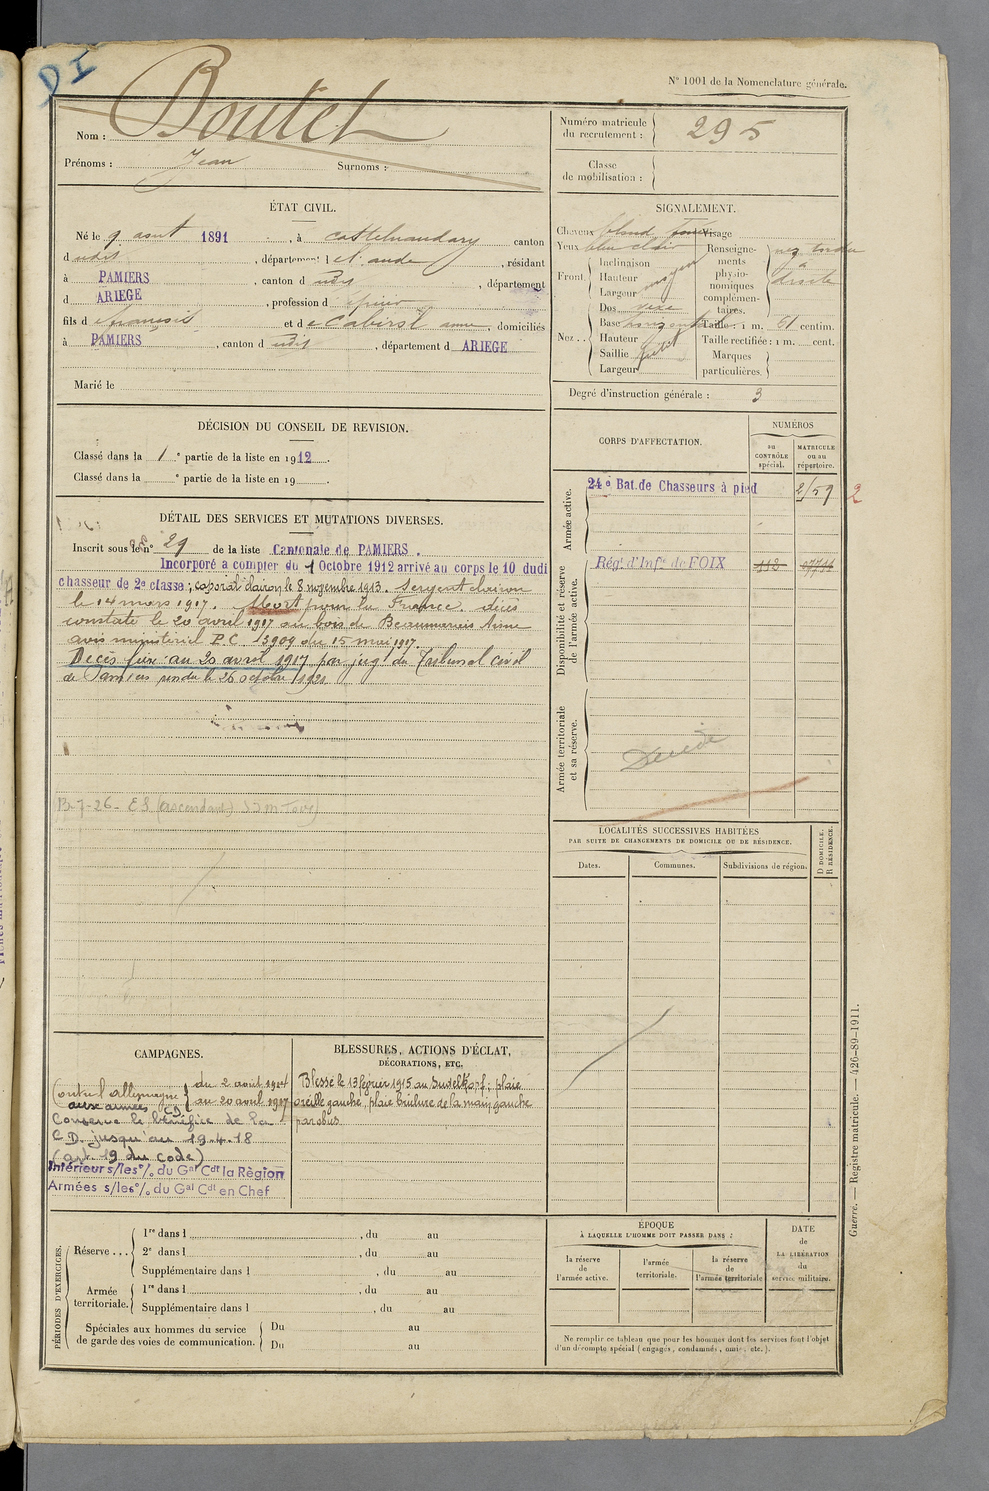 DI
N° 1001 de la Nomenclature générale.
Nom : Boutet
Prénoms : Jean Surnoms :
Numéro matricule du recrutement : 295
Classe de mobilisation :
ÉTAT CIVIL.
Né le 9 aout 1891, à Castelnaudary canton
d udit, département de l'aude, résidant
à PAMIERS, canton d udit, département
d ARIEGE, profession d
fils d e françois et de Cabirol anne, domiciliés
à PAMIERS, canton d udit, département d ARIEGE
Marié le
SIGNALEMENT.
Cheveux blond Visage
Yeux bleu clair
Front. Inclinaison
Hauteur moyen
Largeur
Nez.. Dos vexe
Base horizontale
Hauteur
Saillie petit
Largeur
Renseignements physionomiques complémentaires. nez tordu à droite
Taille : 1 m. 61 centim.
Taille rectifiée : 1 m. cent.
Marques particulières.
Degré d'instruction générale : 3
DÉCISION DU CONSEIL DE REVISION.
Classé dans la 1e partie de la liste en 1912.
Classé dans la e partie de la liste en 19 .
CORPS D'AFFECTATION.
NUMÉROS
au CONTRÔLE spécial.
MATRICULE ou au répertoire.
Armée active.
24e Bat. de Chasseurs à pied 2159 2
Disponibilité et réserve de l'armée active.
Régt d'Infie de FOIX 112
Armée territoriale et sa réserve.
Décédé
DÉTAIL DES SERVICES ET MUTATIONS DIVERSES.
Inscrit sous le n° 29 de la liste Cantonale de PAMIERS.
Incorporé a compter du 1 Octobre 1912 arrivé au corps le 10 dudi
chasseur de 2e classe ; caporal clairon le 8 novembre 1913. Sergent clairon
le 14 mars 1917. Mort pour la France. décès
constaté le 20 avril 1917 au bois de Beaumarais Aisne
avis ministériel P.C 13909 du 15 mai 1917.
Décès fixé au 20 avril 1917 par jugt du Tribunal civil
de Pamiers rendu le 26 octobre 1921
B-7-26- ES (ascendant)
LOCALITÉS SUCCESSIVES HABITÉES
PAR SUITE DE CHANGEMENTS DE DOMICILE OU DE RÉSIDENCE.
Dates. Communes. Subdivisions de région.
D DOMICILE. R RÉSIDENCE.
CAMPAGNES.
Contre l'allemagne du 2 août 1914
aux armées CD au 20 avril 1917
Conserve le bénéfice de la
C D. jusqu'au 19.4.18
(art. 19 du Code)
Intérieur s/les o/. du Gal Cdt la Règion
Armées s/les o/. du Gal Cdt en Chef
BLESSURES, ACTIONS D'ÉCLAT,
DÉCORATIONS, ETC.
Blessé le 13 février 1915 au Sudelkopf ; plaie
oreille gauche, plaie brûlure de la main gauche
par obus.
PÉRIODES D'EXERCICES.
Réserve ... 1re dans l , du au
2e dans l , du au
Supplémentaire dans l , du au
Armée territoriale. 1re dans l , du au
Supplémentaire dans l , du au
Spéciales aux hommes du service Du au
de garde des voies de communication. Du au
ÉPOQUE
À LAQUELLE L'HOMME DOIT PASSER DANS :
la réserve de l'armée active.
l'armée territoriale.
la réserve de l'armée territoriale
DATE de LA LIBÉRATION du service militaire.
Ne remplir ce tableau que pour les hommes dont les services font l'objet
d'un décompte spécial (engagés, condamnés, omis, etc.).
Guerre. — Registre matricule. — 426-89-1911.